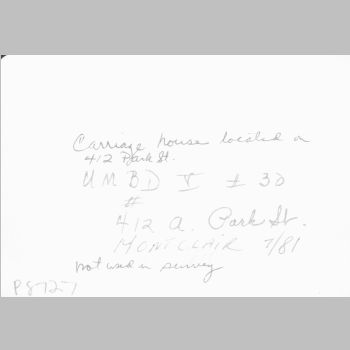 Carriage house located on
412 Park St.
UMBD V # 30
#
412 A. Park St.
MONTCLAIR 7/81
not used in survey